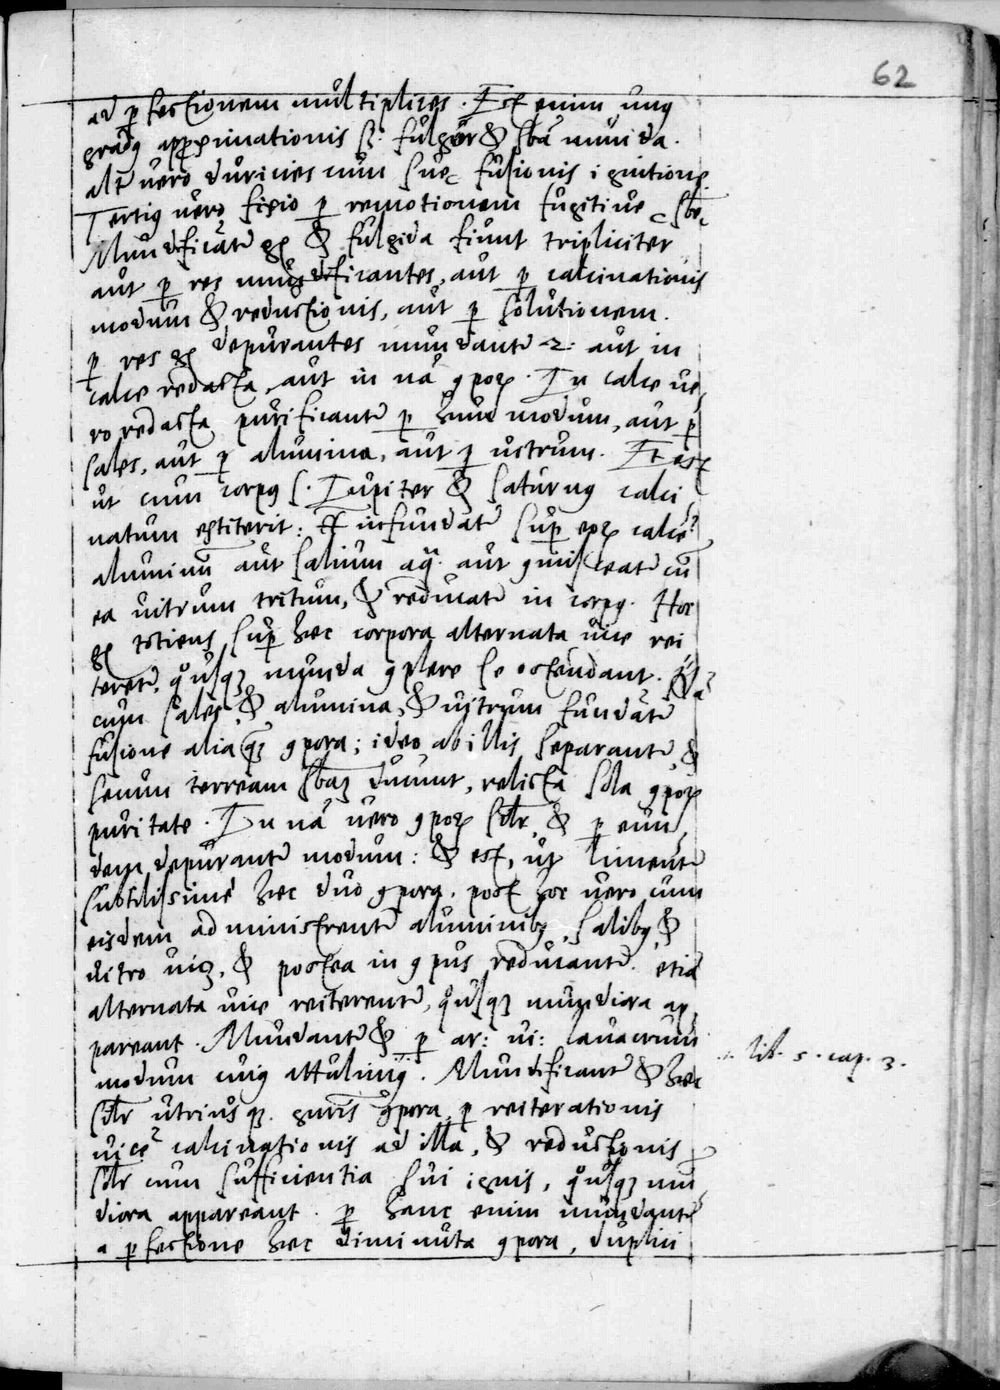 62
ad ꝑfectionem multiplices. Est enim unꝰ
gradꝰ approximationis s: fulgor & sbã munda.
altꝰ vero duricies cum sue fusionis ignitione
Tertiꝰ vero fixio ꝑ remotionem fugitiue sbe.
Mundificãtr & fulgida fiunt tripliciter
aut ꝑ res mundificantes, aut ꝑ calcinationis
modum & reductionis, aut ꝑ solutionem.
ꝑ res depurantes mundantr aut in
calce redacta, aut in nã ꝯpoꝝ. In calce ue
ro redacta purificantr ꝑ hunc modum, aut ꝑ
sales, aut ꝑ alumina, aut ꝑ uitrum. Et est
ut cum corpꝰ s. Iupiter & saturnꝰ calci
natum extiterit: infundatr suꝑ eoꝝ calce
aluminũ aut salium aq̃. aut ꝯmisceatr cũ
ea uitrum tritum, & reducatr in corpꝰ. Hoc
totiens suꝑ hec corpora alternata uice rei
teretr, quousqꝫ munda ꝯplete se ostendant.
cum sales & alumina, & uitrum fundãtr
fusione alia qꝫ ꝯpora; ideo ab illis separantr, &
secum terream sbãꝫ ducunt, relicta sola ꝯpoꝝ
puritate. In nã uero ꝯpoꝝ sĩlr, & ꝑ eun
dem depurantr modum: & est, ut limentr
subtilissime hec duo ꝯpora. post hoc uero cum
eisdem administrentr aluminibꝰ, salibꝰ &
uitro uiꝫ, & postea in ꝯpus reducantr. etiã
alternata uice reiterentr, quousqꝫ mundiora ap
pareant. Mundantr & ꝑ ar: ui: lauacrum
modum cuiꝰ attulimꝰ. Mundificantr & hec
sĩlr utriusqꝫ ꝯpora ꝑ reiterationis
uice calcinationis ad illa, & reductionis
sĩlr cum sufficientia sui ignis, quousqꝫ mun
diora appareant. ꝑ hanc enim mundantr
a ꝑfectione hec diminuta ꝯpora, duplici
lib. 5. cap. 3.